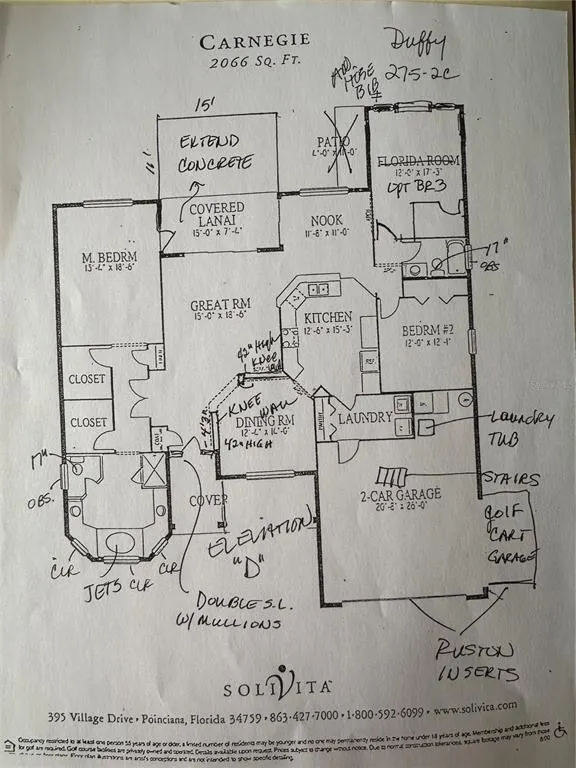 CARNEGIE
2066 SQ. FT.
Duffy
275-2C
ADD
HOSE
BIB
15'
EXTEND
CONCRETE
PATIO
FLORIDA ROOM
12'-0" x 17'-3"
OPT BR3
COVERED
LANAI
15'-0" x 7'-4"
NOOK
11'-8" x 11'-0"
17"
OBS
M. BEDRM
13'-4" x 18'-6"
GREAT RM
15'-0" x 18'-6"
KITCHEN
12'-6" x 15'-3"
BEDRM #2
12'-0" x 12'-1"
42" High
KNEE
WALL
CLOSET
CLOSET
REF.
KNEE WALL
42" HIGH
DINING RM
12'-4" x 14'-0"
LAUNDRY
LAUNDRY
TUB
17"
OBS.
COVER
2-CAR GARAGE
20'-8" x 26'-0"
STAIRS
GOLF
CART
GARAGE
ELEVATION
"D"
CLR
JETS
CLR
CLR
DOUBLE S.L.
W/ MULLIONS
RUSTON
INSERTS
SOLIVITA
395 Village Drive • Poinciana, Florida 34759 • 863-427-7000 • 1-800-592-6099 • www.solivita.com
Occupancy restricted to at least one person 55 years of age or older, a limited number of residents may be younger and no one may permanently reside in the home under 18 years of age. Membership and additional fees
for golf are required. Golf course facilities are privately owned and operated. Details available upon request. Prices subject to change without notice. Due to normal construction tolerances, square footage may vary from those
8/02